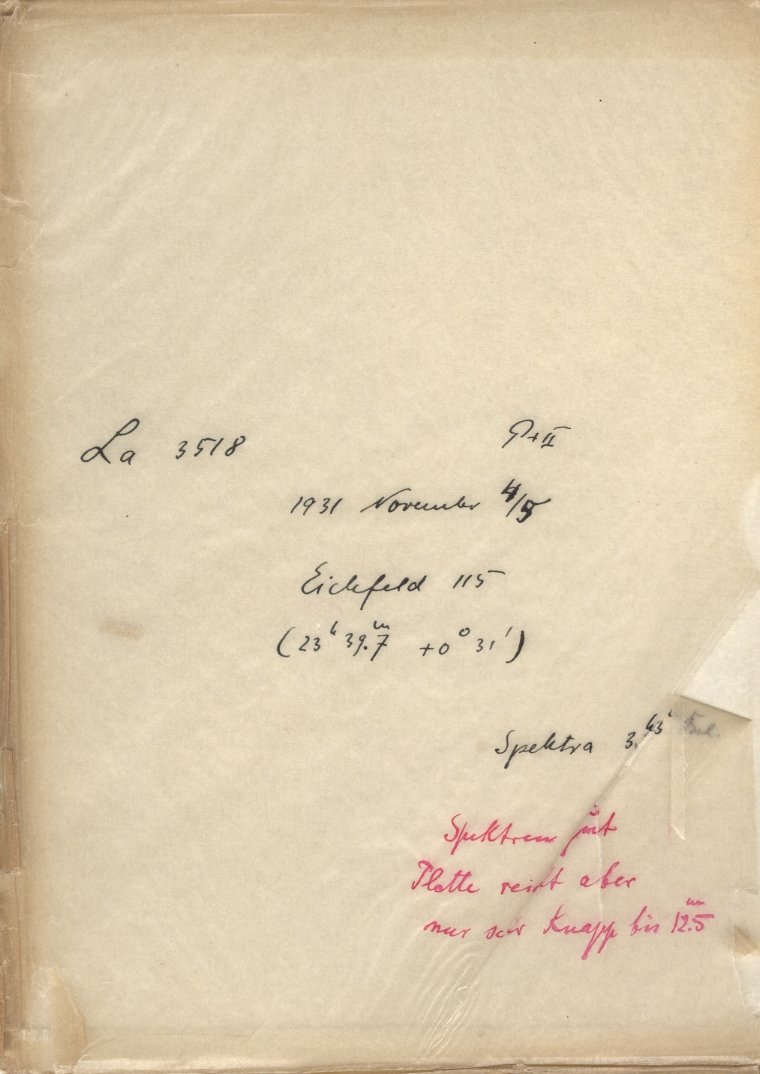 La 3518 P+II
1931 November 4/5
Eichfeld 115
(23h 39.m7 +0° 31')
Spektra 3.
Spektren gut
Platte reicht aber
nur sehr knapp bis 12.m5